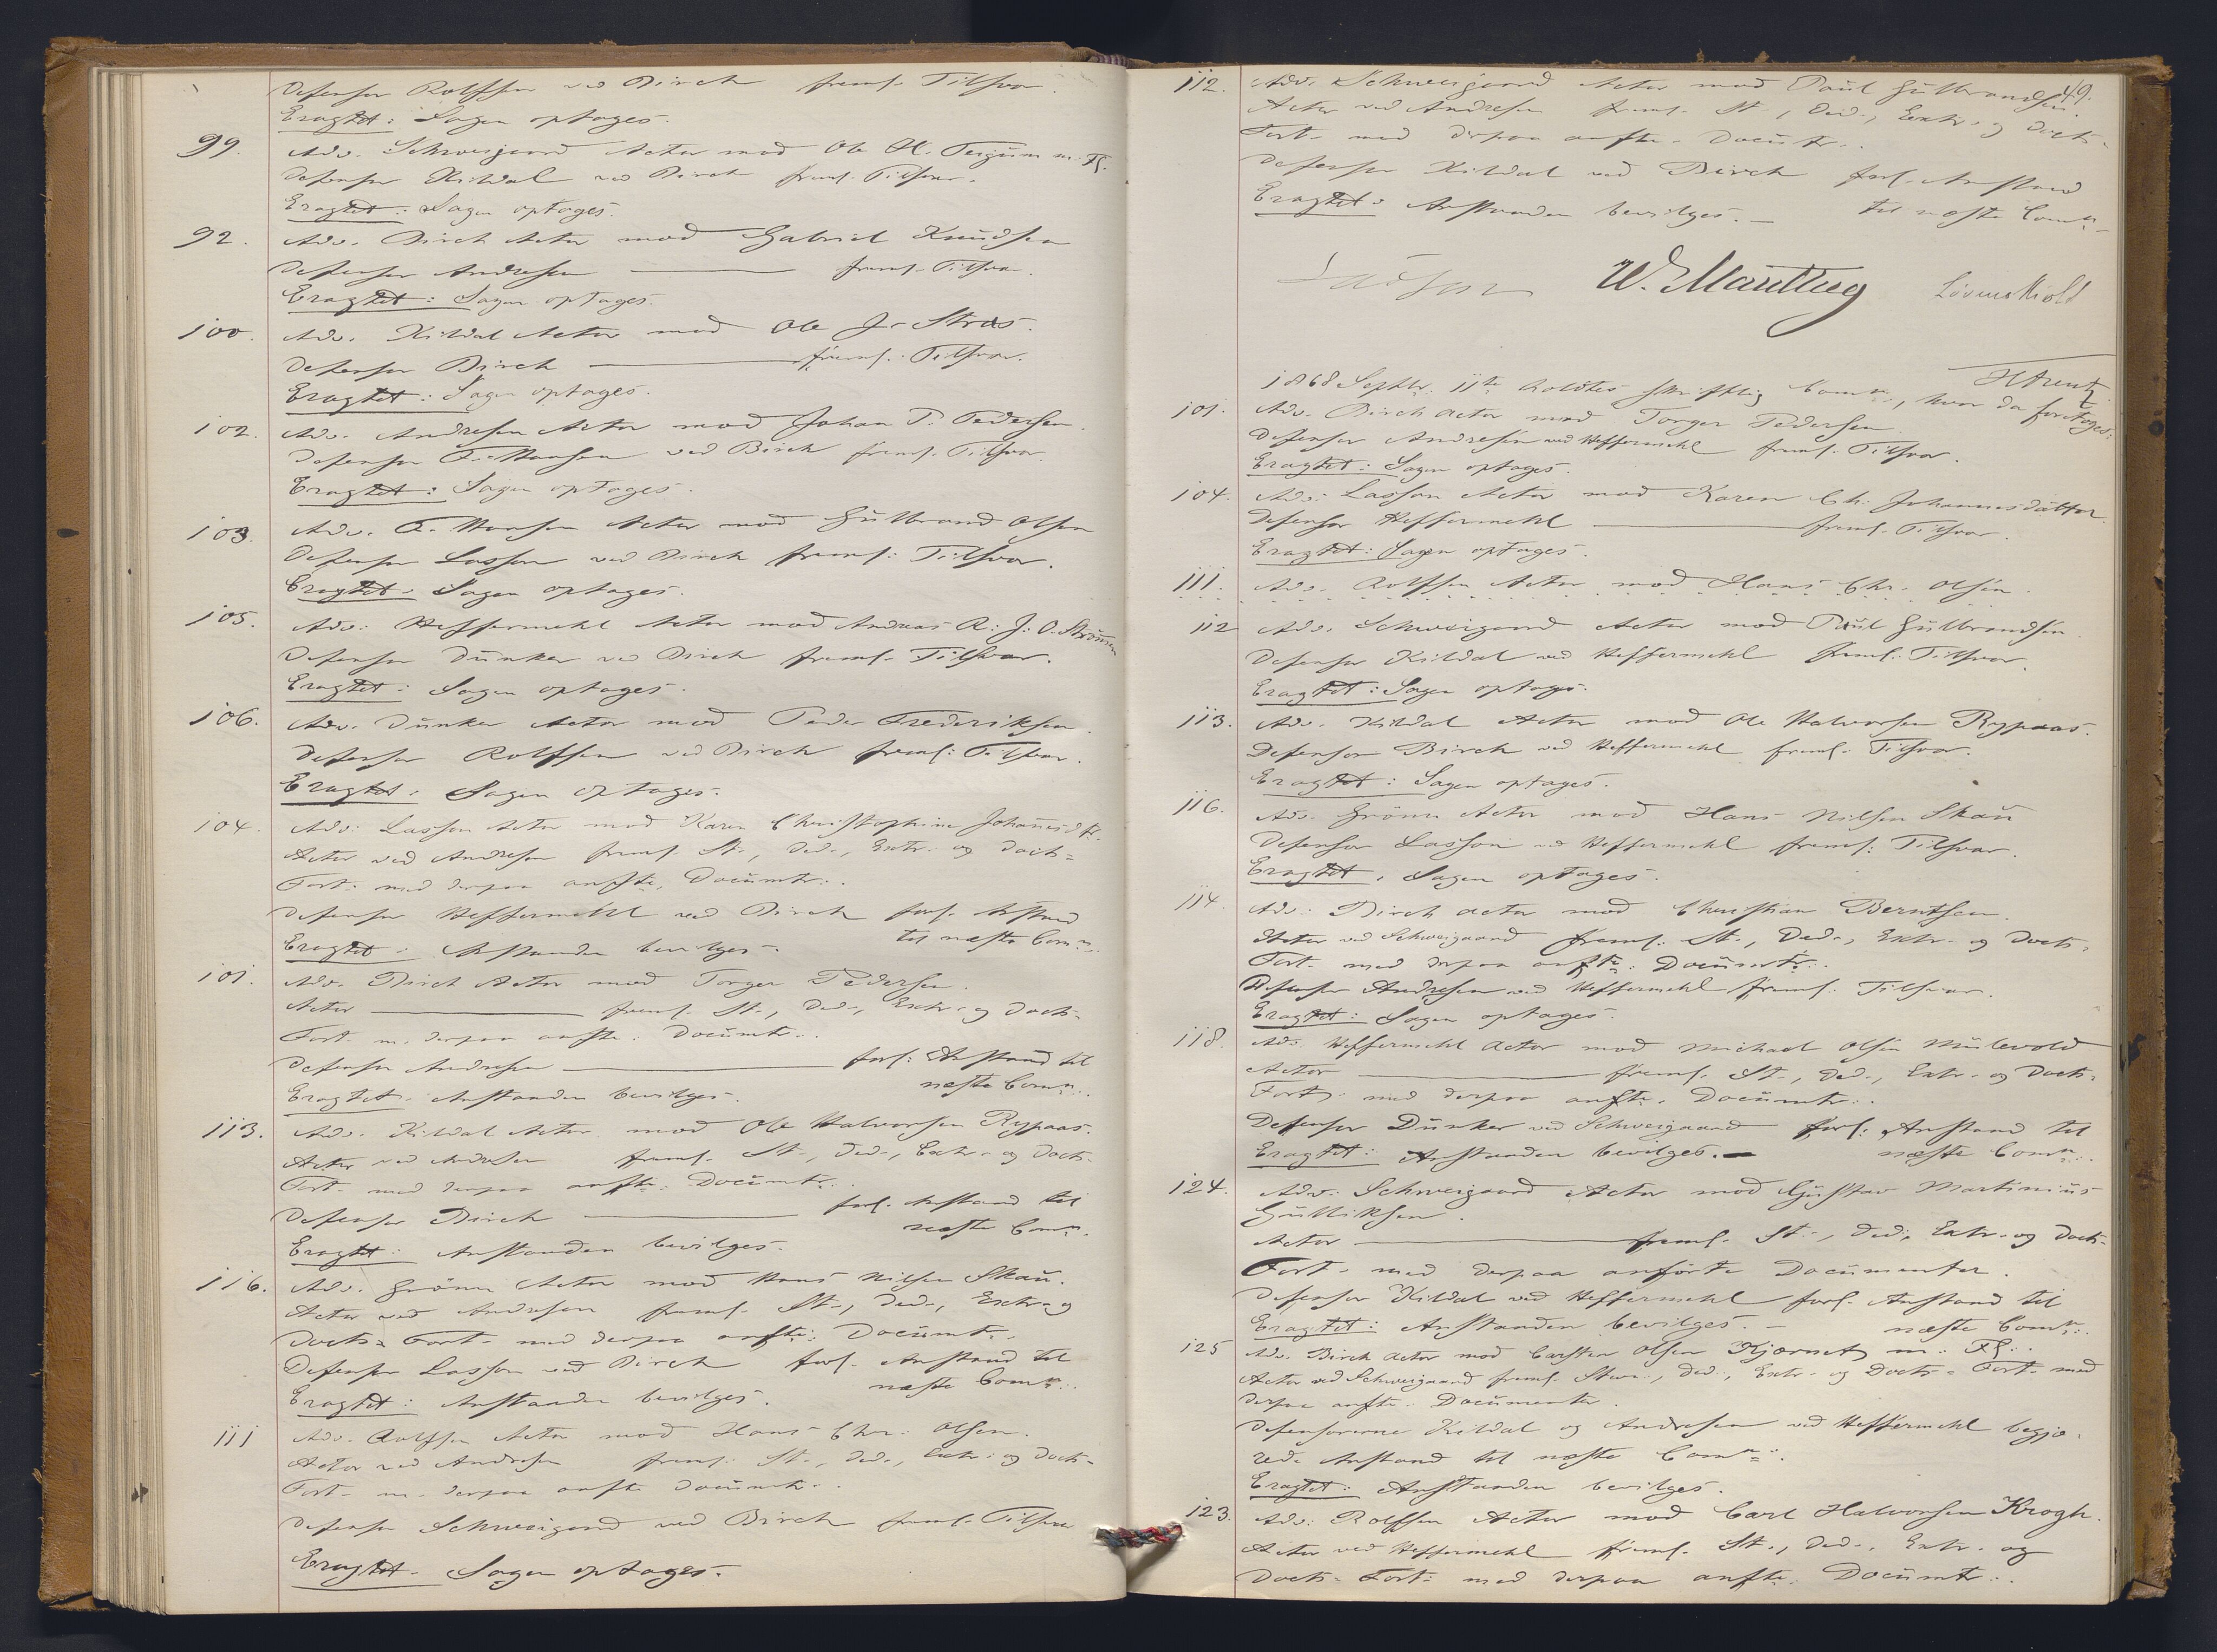 Defensor Rolffsen ved Birch freml. Tilsvar.
Eragtet: Sagen optages.
99. Adv. Schweigaard Actor mod Ole H. Teigum m. Fl.
Defensor Kildal ved Birch freml. Tilsvar.
Eragtet: Sagen optages.
92. Adv. Birch Actor mod Gabriel Knudsen
Defensor Andresen — freml. Tilsvar.
Eragtet: Sagen optages.
100. Adv. Kildal Actor mod Ole J. Strøs.
Defensor Birch — freml. Tilsvar.
Eragtet: Sagen optages.
102. Adv. Andresen Actor mod Johan P. Pedersen.
Defensor F. Hansen ved Birch freml. Tilsvar.
Eragtet: Sagen optages.
103. Adv. F. Hansen Actor mod Gulbrand Olsen
Defensor Lasson ved Birch freml: Tilsvar.
Eragtet: Sagen optages.
105. Adv: Heffermehl Actor mod Andreas A: J: O. Strömen
Defensor Dunker ved Birch freml. Tilsvar.
Eragtet: Sagen optages.
106. Adv. Dunker Actor mod Peder Frederiksen.
Defensor Rolffsen ved Birch freml: Tilsvar.
Eragtet: Sagen optages.
104. Adv: Lasson Actor mod Karen Christophine Johannesdtr.
Actor ved Andresen freml. St., Ded., Extr. og Docts=
Fort: med derpaa anfte. Documtr:.
Defensor Heffermehl ved Birch forl. Anstand
Eragtet: Anstanden bevilges. til næste Comn:.
101. Adv. Birch Actor mod Torger Pedersen.
Actor — freml. St., Ded., Extr. og Docts=
Fort. m. derpaa anfte: Documtr:.
Defensor Andresen — forl: Anstand til
Eragtet: Anstanden bevilges. næste Comn:.
113. Adv. Kildal Actor mod Ole Halvorsen Rypaas.
Actor ved Andresen freml. St., Ded., Extr. og Docts=
Fort. med derpaa anfte: Documtr:.
Defensor Birch — forl. Anstand til
Eragtet: Anstanden bevilges. næste Comn:.
116. Adv. Grönn Actor mod Hans Nilsen Skau.
Actor ved Andresen freml. St., Ded., Extr. og
Docts= Fort. med derpaa anfte: Documt:.
Defensor Lasson ved Birch forl. Anstand til
Eragtet: Anstanden bevilges. næste Comn:.
111 Adv. Rolffsen Actor mod Hans Chr. Olsen.
Actor ved Andresen freml: St., Ded., Extr. og Docts=
Fort. m. derpaa anfte Documtr:.
Defensor Schweigaard ved Birch freml. Tilsvar
Eragtet. Sagen optages.
49.
112. Adv. Schweigaard Actor mod Paul Gulbrandsen.
Actor ved Andresen freml. St., Ded., Extr. og Docts=
Fort. med derpaa anfte. Documtr:.
Defensor Kildal ved Birch forl. Anstand
Eragtet: Anstanden bevilges. — til næste Comn:
Lasson W. Manthey Løvenskiold
HArentz
1868 Septbr. 11te holdtes skriftlig Comn:, hvor da foretoges:
101. Adv. Birch Actor mod Torger Pedersen.
Defensor Andresen ved Heffermehl freml. Tilsvar.
Eragtet: Sagen optages.
104. Adv: Lasson Actor mod Karen Ch. Johannesdatter.
Defensor Heffermehl — freml. Tilsvar.
Eragtet: Sagen optages.
111. Adv. Rolffsen Actor mod Hans Chr. Olsen.
112 Adv. Schweigaard Actor mod Paul Gulbrandsen.
Defensor Kildal ved Heffermehl freml: Tilsvar.
Eragtet: Sagen optages.
113. Adv. Kildal Actor mod Ole Halvorsen Rypaas.
Defensor Birch ved Heffermehl freml. Tilsvar.
Eragtet: Sagen optages.
116. Adv. Grönn Actor mod Hans Nilsen Skau
Defensor Lasson ved Heffermehl freml: Tilsvar.
Eragtet: Sagen optages.
114. Adv: Birch Actor mod Christian Berntsen.
Actor ved Schweigaard freml: St., Ded., Extr. og Docts=
Fort. med derpaa anfte: Documtr:.
Defensor Andresen ved Heffermehl freml. Tilsvar.
Eragtet: Sagen optages.
118. Adv. Heffermehl Actor mod Michael Olsen Mülevold
Actor — freml. St., Ded., Extr. og Docts=
Fort: med derpaa anfte. Documtr:.
Defensor Dunker ved Schweigaard forl: Anstand til
Eragtet: Anstanden bevilges. — næste Comn:.
124. Adv. Schweigaard Actor mod Gustav Martinius
Gulliksen.
Actor — freml. St., Ded., Extr. og Docts=
Fort. med derpaa anførte Documenter.
Defensor Kildal ved Heffermehl forl. Anstand til
Eragtet: Anstanden bevilges. — næste Comn:.
125 Adv. Birch Actor mod Carsten Olsen Kjørnets m. Fl:.
Actor ved Schweigaard freml. Stevn., Ded., Extr. og Docts= Fort. med
derpaa anfte. Documenter.
Defensorerne Kildal og Andresen ved Heffermehl begjæ=
rede Anstand til næste Comn:.
Eragtet: Anstanden bevilges.
123. Adv: Rolffsen Actor mod Carl Halvorsen Krogh.
Actor ved Heffermehl freml. St., Ded., Extr. og
Docts= Fort: med derpaa anfte. Documtr:.